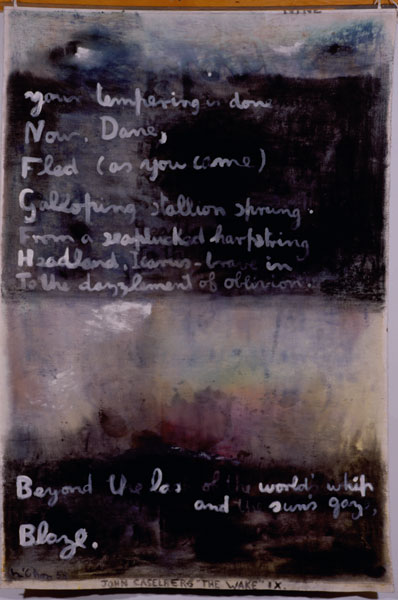 your tempering is done
Now. Dane,
Fled (as you came)
Galloping stallion sprung.
From a seaplucked harpstring
Headland. Icarus-brave in
To the dazzlement of oblivion.
Beyond the las of the world's whip
and the sun's gaze,
Blaze.
JOHN CASELBERG "THE WAKE" IX.